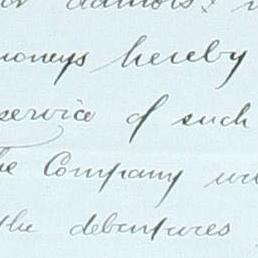 moneys hereby
service of such
The Company
the debentures